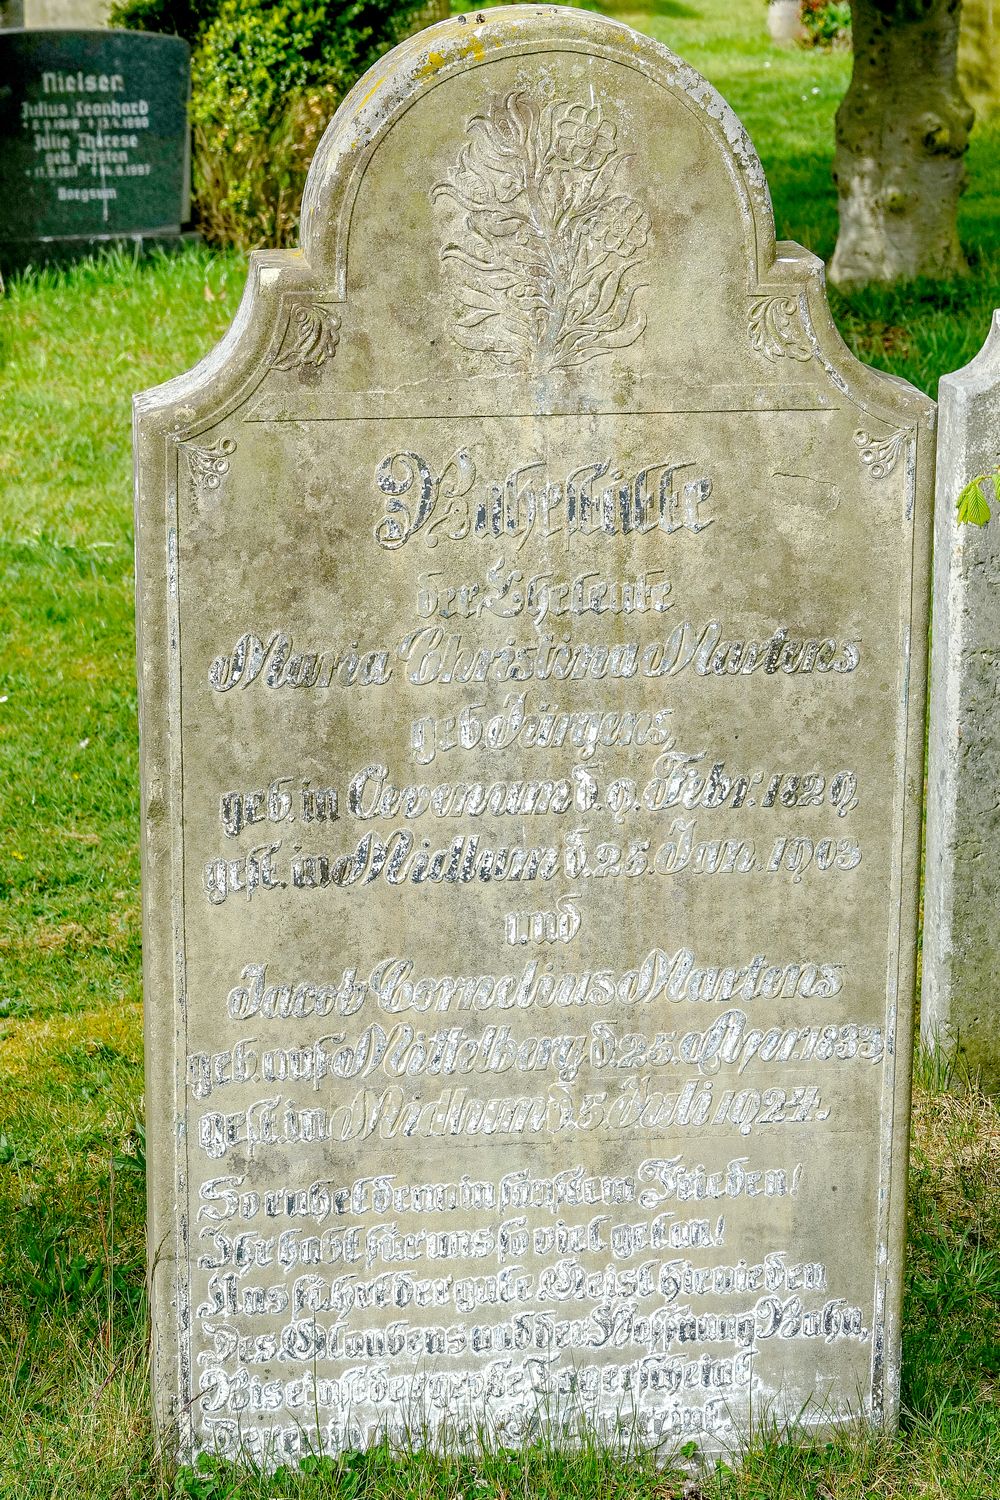 Nielsen
Julius Leonhard
Julie Therese
geb
Borgsum
Ruhestätte
der Eheleute
Maria Christina Martens
geb Jürgens,
geb. in Oevenum d. 9. Febr. 1829,
gest. in Midlum d. 25. Jan. 1903
und
Jacob Cornelius Martens
geb. auf Mittelberg d. 25. Apr. 1833,
gest. in Midlum d. 5 Juli 1924.
So ruhet denn in sanftem Frieden!
Ihr habt für uns so viel getan!
Uns führe der gute Geist hienieden
Des Glaubens und der Hoffnung Bahn,
Bis einst der große Tag erscheint,
Der ein